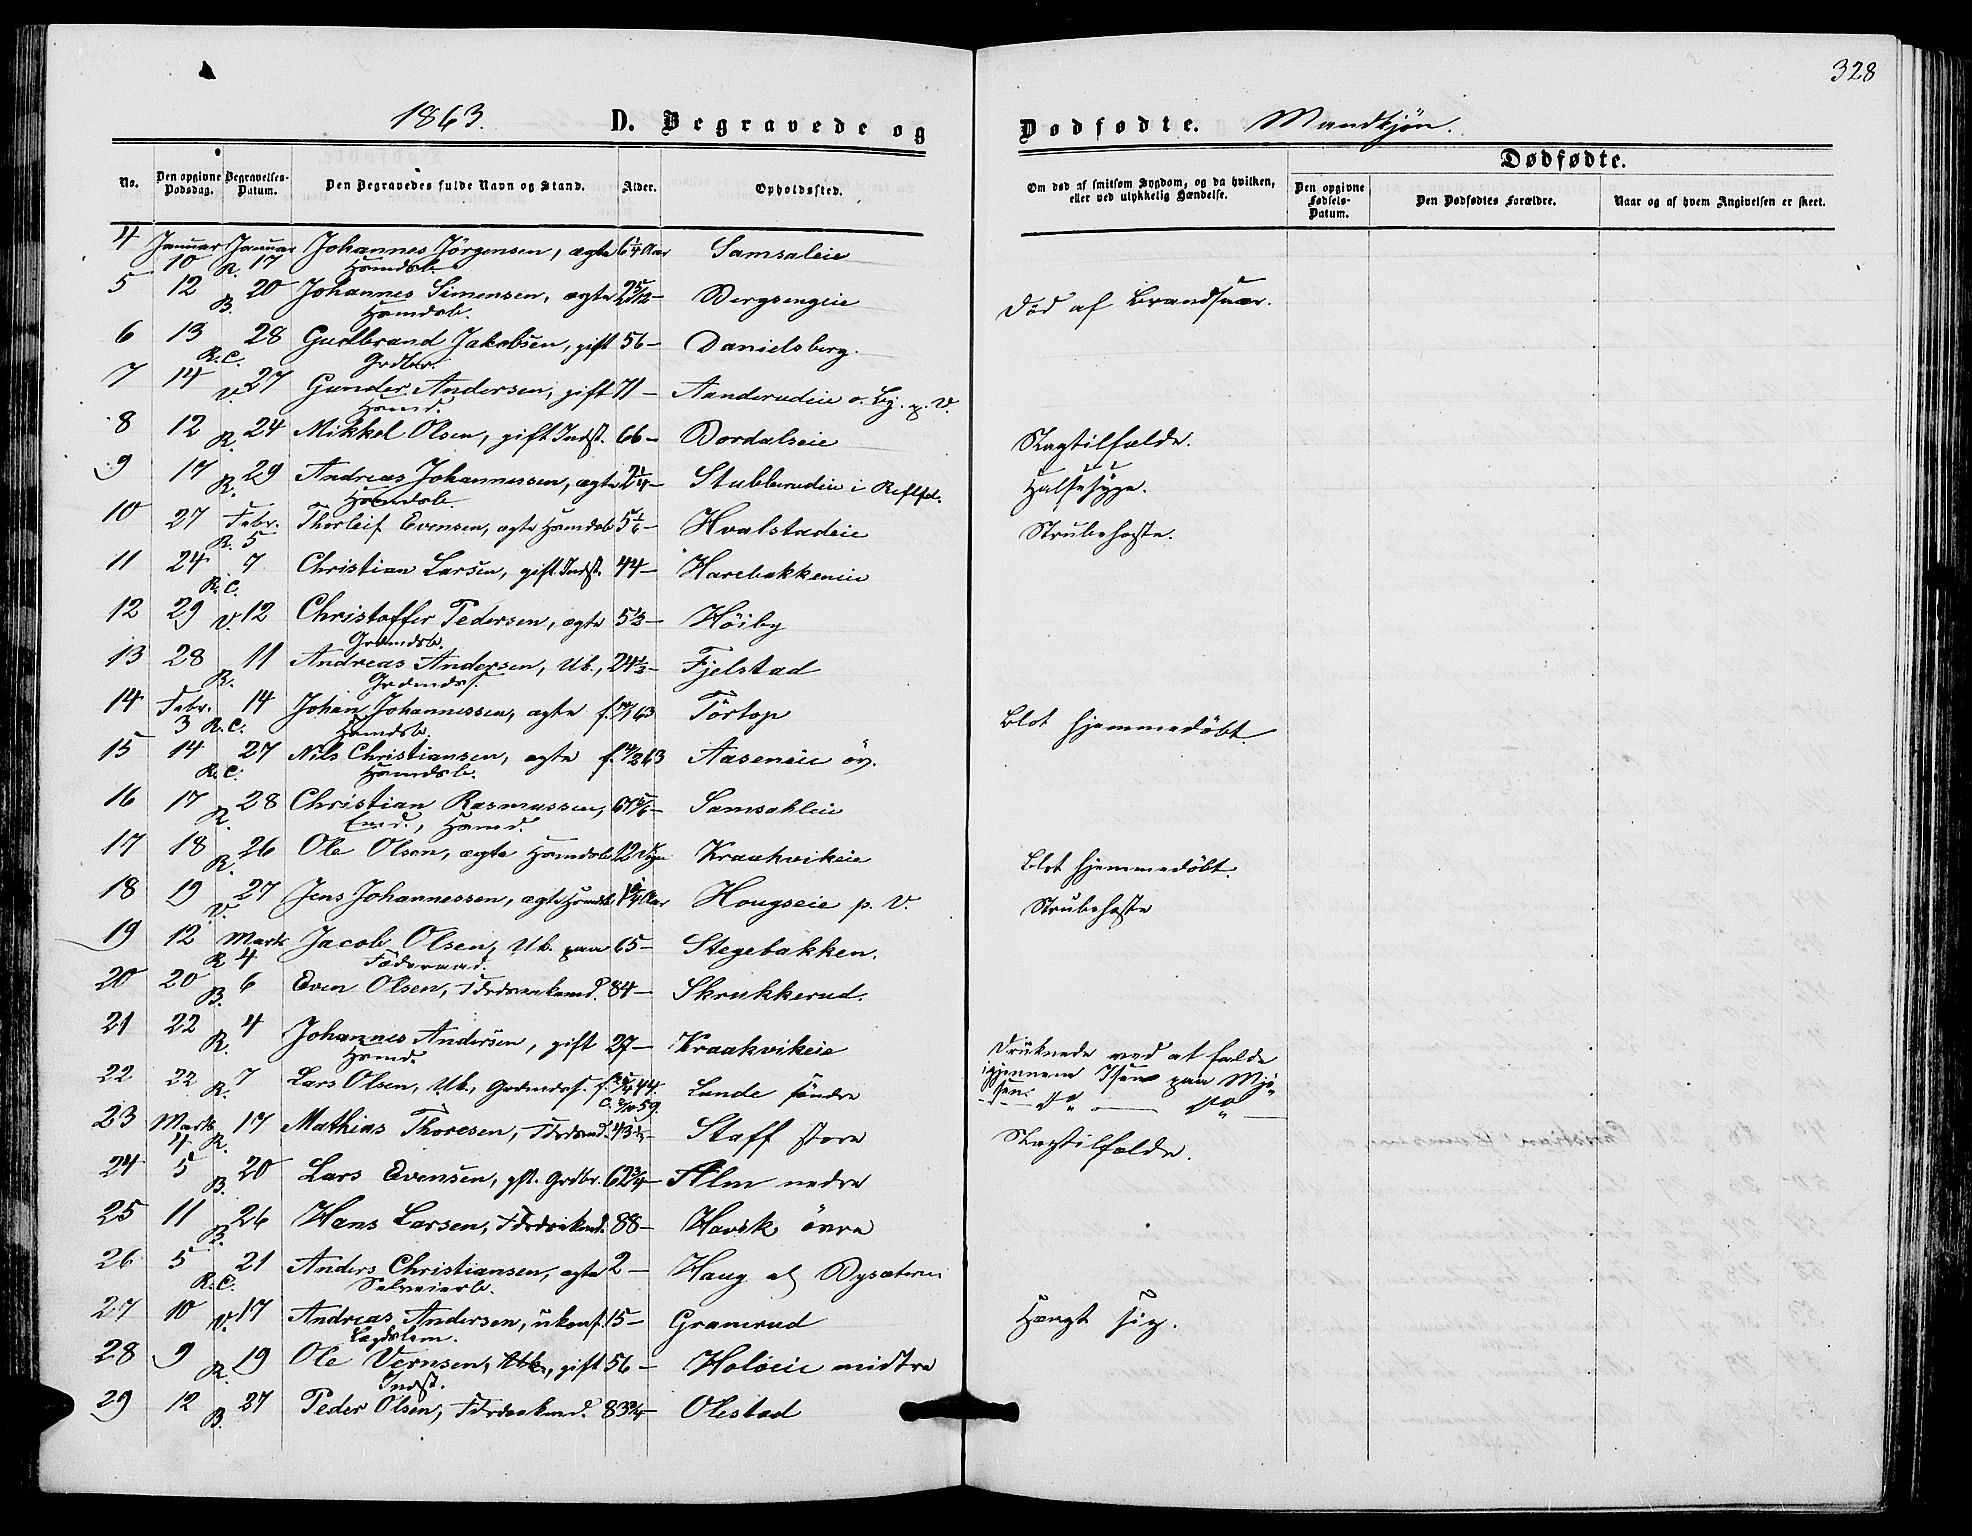 328
1863. D. Begravede og Dødfødte. Mandkjøn.
Dødfødte.
No. Den opgivne Dødsdag. Begravelses-Datum. Den Begravedes fulde Navn og Stand. Alder. Opholdssted. Om død af smitsom Sygdom, og da hvilken, eller ved ulykkelig Hændelse. Den opgivne Fødsels-Datum. Den Dødfødtes Forældre. Naar og af hvem Angivelsen er skeet.
4 Januar Januar Johannes Jörgensen, ægte 6 1/4 Aar Samsaleie
10 R. 17 Hsmdsb.
5 12 B. 20 Johannes Simensen, ægte 2 5/12 — Bergsengeie Död af Brandsaar.
Hsmdsb.
6 13 28 Gudbrand Jakobsen, gift 56 — Danielsberg.
R.C. Grdbr.
7 14 V. 27 Gunder Andersen, gift 71 — Aanderudeie o. Lg. p. V.
Hsmd.
8 12 R. 24 Mikkel Olsen, gift Indst. 66 — Dordalseie Slagtilfælde.
9 17 R. 29 Andreas Johannessen, ægte 2 1/4 — Stubberudeie i Halssyge.
Hsmdsb.
10 27 Febr. Thorleif Evensen, ægte Hsmdsb 5 1/6 — Hvalstadeie Strubehoste.
R. 5
11 24 7 Christian Larsen, gift Indst. 44 — Harebakkeneie
R.C.
12 29 V. 12 Christoffer Pedersen, ægte 5 1/3 — Höiby
Grdmdsb.
13 28 11 Andreas Andersen, Ub., 24 1/2 — Fjelstad
R. Grdmdss.
14 Febr. 14 Johan Johannessen, ægte f. 63 Törtop Blot hjemmedöbt.
3 R.C. Hsmdsb.
15 14 27 Nils Christiansen, ægte f. 14/2 63 Aaseneie öv.
R.C. Hsmdsb.
16 17 R. 28 Christian Rasmussen, 67 5/6 — Samsahleie
Enkd., Hsmd.
17 18 R. 26 Ole Olsen, ægte Hsmdsb 12 Dage Kraakvikeie Blot hjemmedöbt.
18 19 V. 27 Jens Johannessen, ægte Hsmdsb Aar Hougseie p. V. Strubehoste
19 12 Marts Jacob Olsen, Ub. paa 65 — Stegebakken.
R 4 Föderaad.
20 20 B. 6 Even Olsen, Fdrdsenkemd. 84 — Skrukkerud.
21 22 R. 4 Johannes Andersen, gift 27 — Kraakvikeie Druknede ved at falde
Hsmd. igjennem Isen paa Mjö-
22 22 R. 7 Lars Olsen, Ub., Grdmdss. f. 44. Lunde söndre sen.
c. 59. — D° — D° —
23 Marts 17 Mathias Thoresen, Fdrdsmd. 43 1/2 — Staff store Slagtilfælde.
4 R.
24 5 B. 20 Lars Evensen, gft. Grdbr. 62 3/4 — Alm nedre
25 11 B. 26 Hans Larsen, Fdrdsenkmd. 88 — Havsk övre
26 5 21 Anders Christiansen, ægte 2 — Haug af Dysæteren
R.C. Selveierb.
27 10 V. 17 Andreas Andersen, ukonf. 15 — Gramrud Hængt sig.
Lægdslem.
28 9 R. 19 Ole Vernsen, gift 56 — Holöeie midtre
Indst.
29 12 B. 27 Peder Olsen, Fdrdsenkmd. 83 3/4 — Olestad